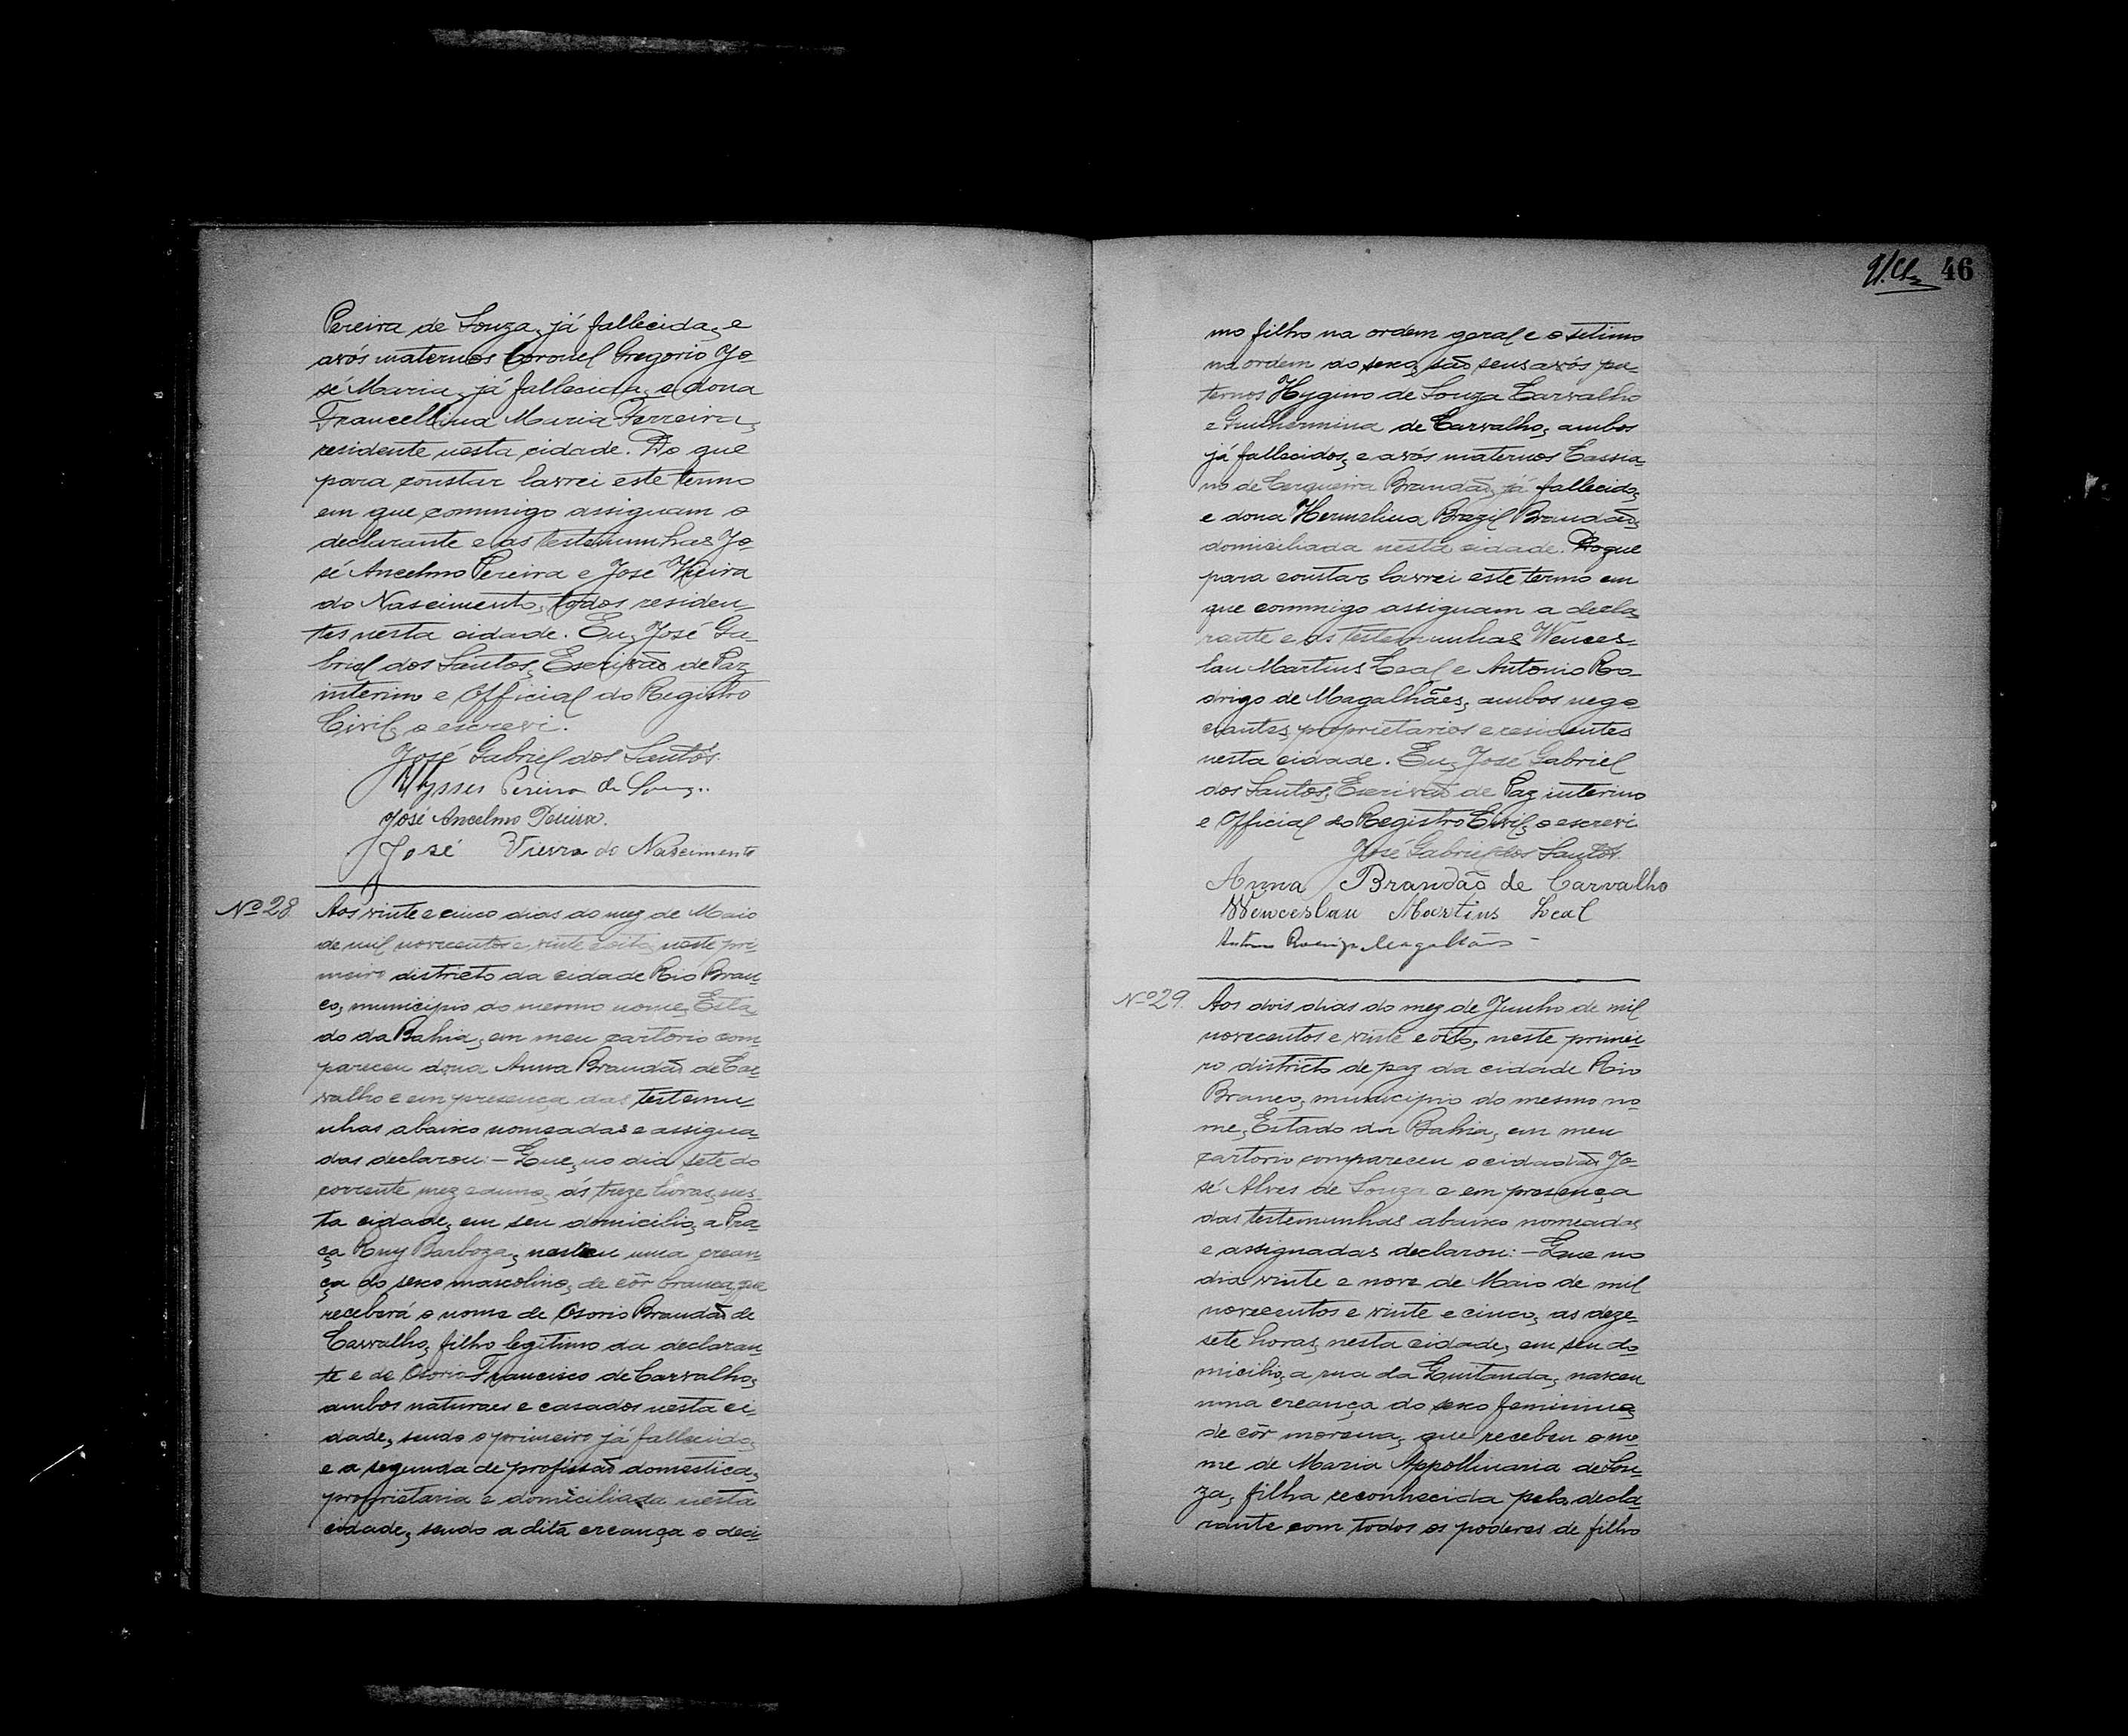 Pereira de Souza, já fallecida, e
avós maternos Coronel Gregorio Jo-
sé Maria, já fallecido, e dona
Francellina Maria Ferreira,
residente nesta cidade. Do que
para constar lavrei este termo
em que commigo assignam o
declarante e as testemunhas Jo-
sé Ancelmo Pereira e José Vieira
do Nascimento, todos residen-
tes nesta cidade. Eu, José Ga-
briel dos Santos, Escrivão de Paz
interino e Official do Registro
Civil, o escrevi.
José Gabriel dos Santos.
Ulysses Pereira de Souza.
José Ancelmo Pereira.
José Vieira do Nascimento
Nº 28. Aos vinte e cinco dias do mez de Maio
de mil novecentos e vinte e oito, neste pri-
meiro districto da cidade Rio Bran-
co, municipio do mesmo nome, Esta-
do da Bahia, em meu cartorio com-
pareceu dona Anna Brandão de Car-
valho e em presença das testemu-
nhas abaixo nomeadas e assigna-
das declarou: – Que, no dia sete do
corrente mez e anno, ás treze horas, nes-
ta cidade, em seu domicilio, a Pra-
ça Ruy Barboza, nasceu uma crean-
ça do sexo mascolino, de côr branca, que
receberá o nome de Osorio Brandão de
Carvalho, filho legitimo da declaran-
te e de Osorio Francisco de Carvalho,
ambos naturaes e casados nesta ci-
dade, sendo o primeiro já fallecido,
e a segunda de profissão domestica,
proprietaria e domiciliada nesta
cidade, sendo a dita creança o deci-
46
mo filho na ordem geral e o setimo
na ordem do sexo, são seus avós pa-
ternos Hygino de Souza Carvalho
e Guilhermina de Carvalho, ambos
já fallecidos, e avós maternos Cassia-
no de Cerqueira Brandão, já fallecido,
e dona Hermelina Brazil Brandão,
domiciliada nesta cidade. Do que
para constar lavrei este termo em
que commigo assignam a decla-
rante e as testemunhas Wences-
lau Martins Leal e Antonio Ro-
drigo de Magalhães, ambos nego-
ciantes, proprietarios e residentes
nesta cidade. Eu, José Gabriel
dos Santos, Escrivão de Paz interino
e Official do Registro Civil, o escrevi
José Gabriel dos Santos.
Anna Brandão de Carvalho
Wenceslau Martins Leal
Antonio Rodrigo Magalhães
Nº 29. Aos dois dias do mez de Junho de mil
novecentos e vinte e oito, neste primei-
ro districto de paz da cidade Rio
Branco, municipio do mesmo no-
me, Estado da Bahia, em meu
cartorio compareceu o cidadão Jo-
sé Alves de Souza e em presença
das testemunhas abaixo nomeadas
e assignadas declarou: – Que no
dia vinte e nove de Maio de mil
novecentos e vinte e cinco, as deze-
sete horas, nesta cidade, em seu do-
micilio, a rua da Quitanda, nasceu
uma creança do sexo feminino,
de côr morena, que recebeu o no-
me de Maria Appollinaria de Sou-
za, filha reconhecida pelo decla-
rante com todos os poderes de filho